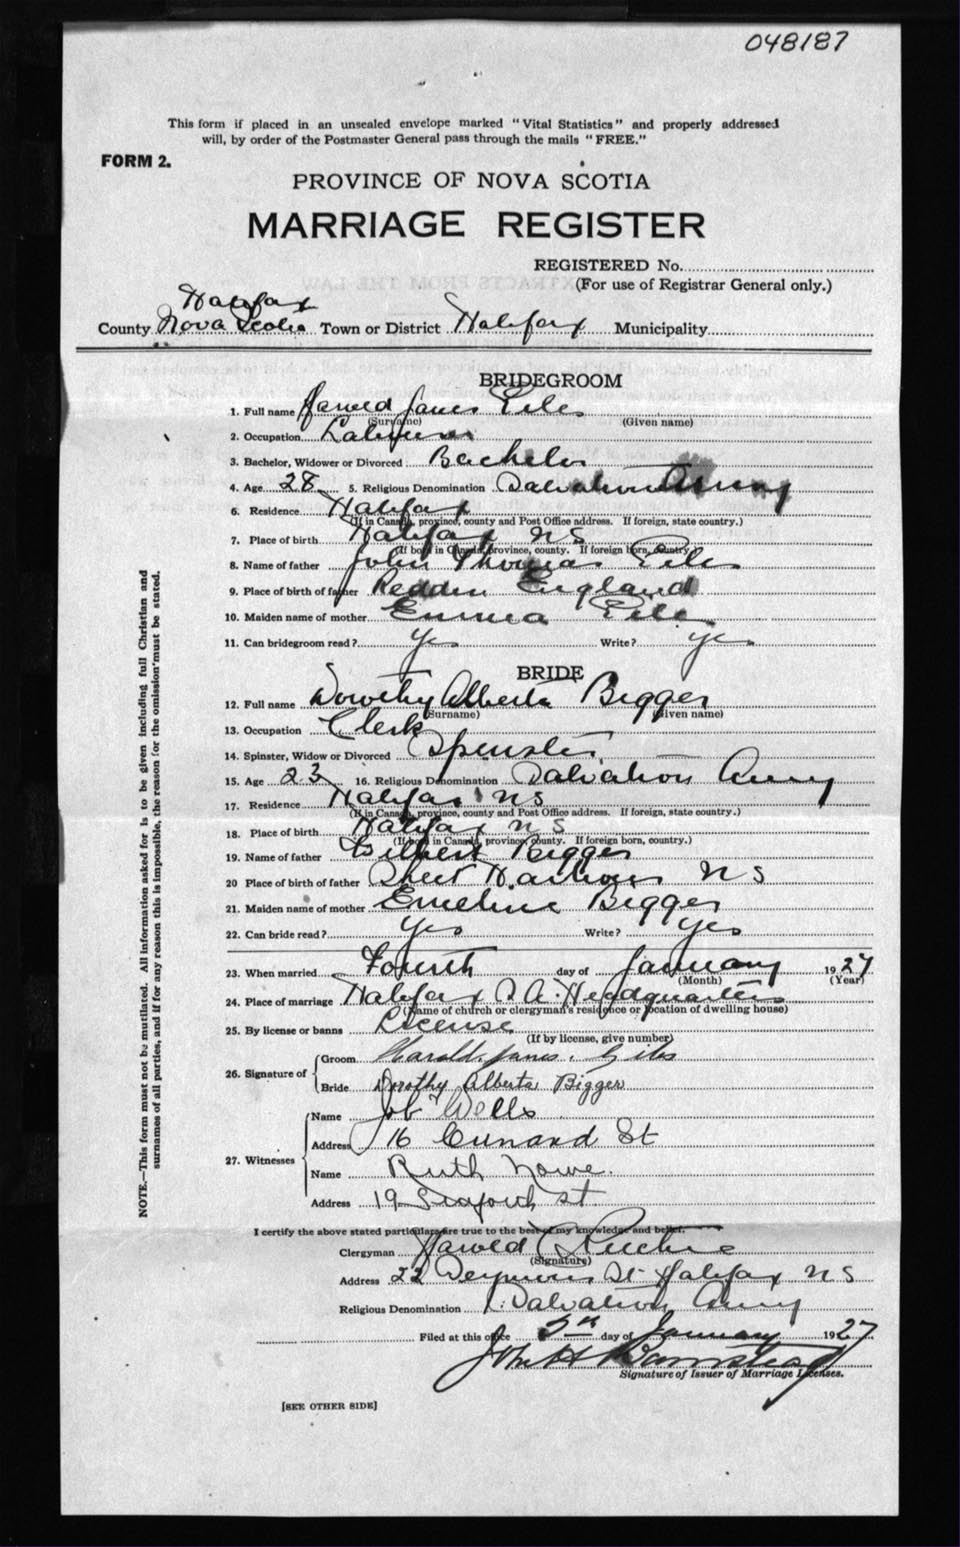 048187
This form if placed in an unsealed envelope marked "Vital Statistics" and properly addressed
will, by order of the Postmaster General pass through the mails "FREE."
FORM 2.
PROVINCE OF NOVA SCOTIA
MARRIAGE REGISTER
REGISTERED No.
(For use of Registrar General only.)
Halifax
County Nova Scotia Town or District Halifax Municipality
BRIDEGROOM
1. Full name Harold James
(Surname) (Given name)
2. Occupation
3. Bachelor, Widower or Divorced Bachelor
4. Age 28 5. Religious Denomination Salvation Army
6. Residence Halifax
(If in Canada, province, county and Post Office address. If foreign, state country.)
7. Place of birth Halifax NS
(If born in Canada, province, county. If foreign born, country.)
8. Name of father John Thomas
9. Place of birth of father England
10. Maiden name of mother Emma
11. Can bridegroom read? Yes Write? Yes
BRIDE
12. Full name Dorothy Alberta Bigger
(Surname) (Given name)
13. Occupation Clerk
14. Spinster, Widow or Divorced Spinster
15. Age 23 16. Religious Denomination Salvation Army
17. Residence Halifax NS
(If in Canada, province, county and Post Office address. If foreign, state country.)
18. Place of birth Halifax NS
(If born in Canada, province, county. If foreign born, country.)
19. Name of father Gilbert Bigger
20 Place of birth of father Sheet Harbour NS
21. Maiden name of mother Emeline Bigger
22. Can bride read? Yes Write? Yes
23. When married Fourth day of January 1927
(Month) (Year)
24. Place of marriage Halifax S. A. Headquarters
(Name of church or clergyman's residence or location of dwelling house)
25. By license or banns License
(If by license, give number)
26. Signature of Groom Harold James Giles
Bride Dorothy Alberta Bigger
27. Witnesses Name Job Wells
Address 16 Cunard St
Name Ruth Nowe.
Address 19 Seaforth st
I certify the above stated particulars are true to the best of my knowledge and belief.
Clergyman Harold C Ritchie
(Signature)
Address 22 Seymour St Halifax NS
Religious Denomination Salvation Army
Filed at this office 5th day of January 1927
John H Barnstead
Signature of Issuer of Marriage Licenses.
[SEE OTHER SIDE]
NOTE.—This form must not be mutilated. All information asked for is to be given including full Christian and
surnames of all parties, and if for any reason this is impossible, the reason for the omission must be stated.